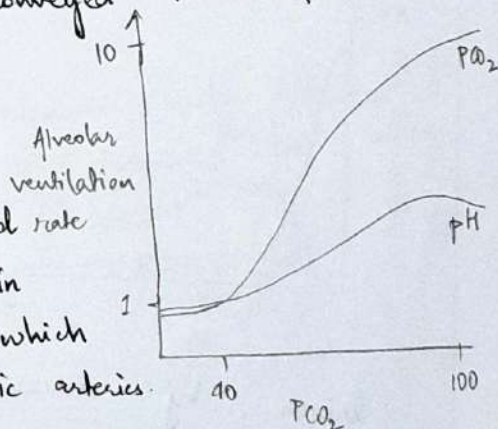 conveyed
10
PCO₂
Alveolar
ventilation
rate
pH
in
1
which
ic arteries.
40
100
PCO₂